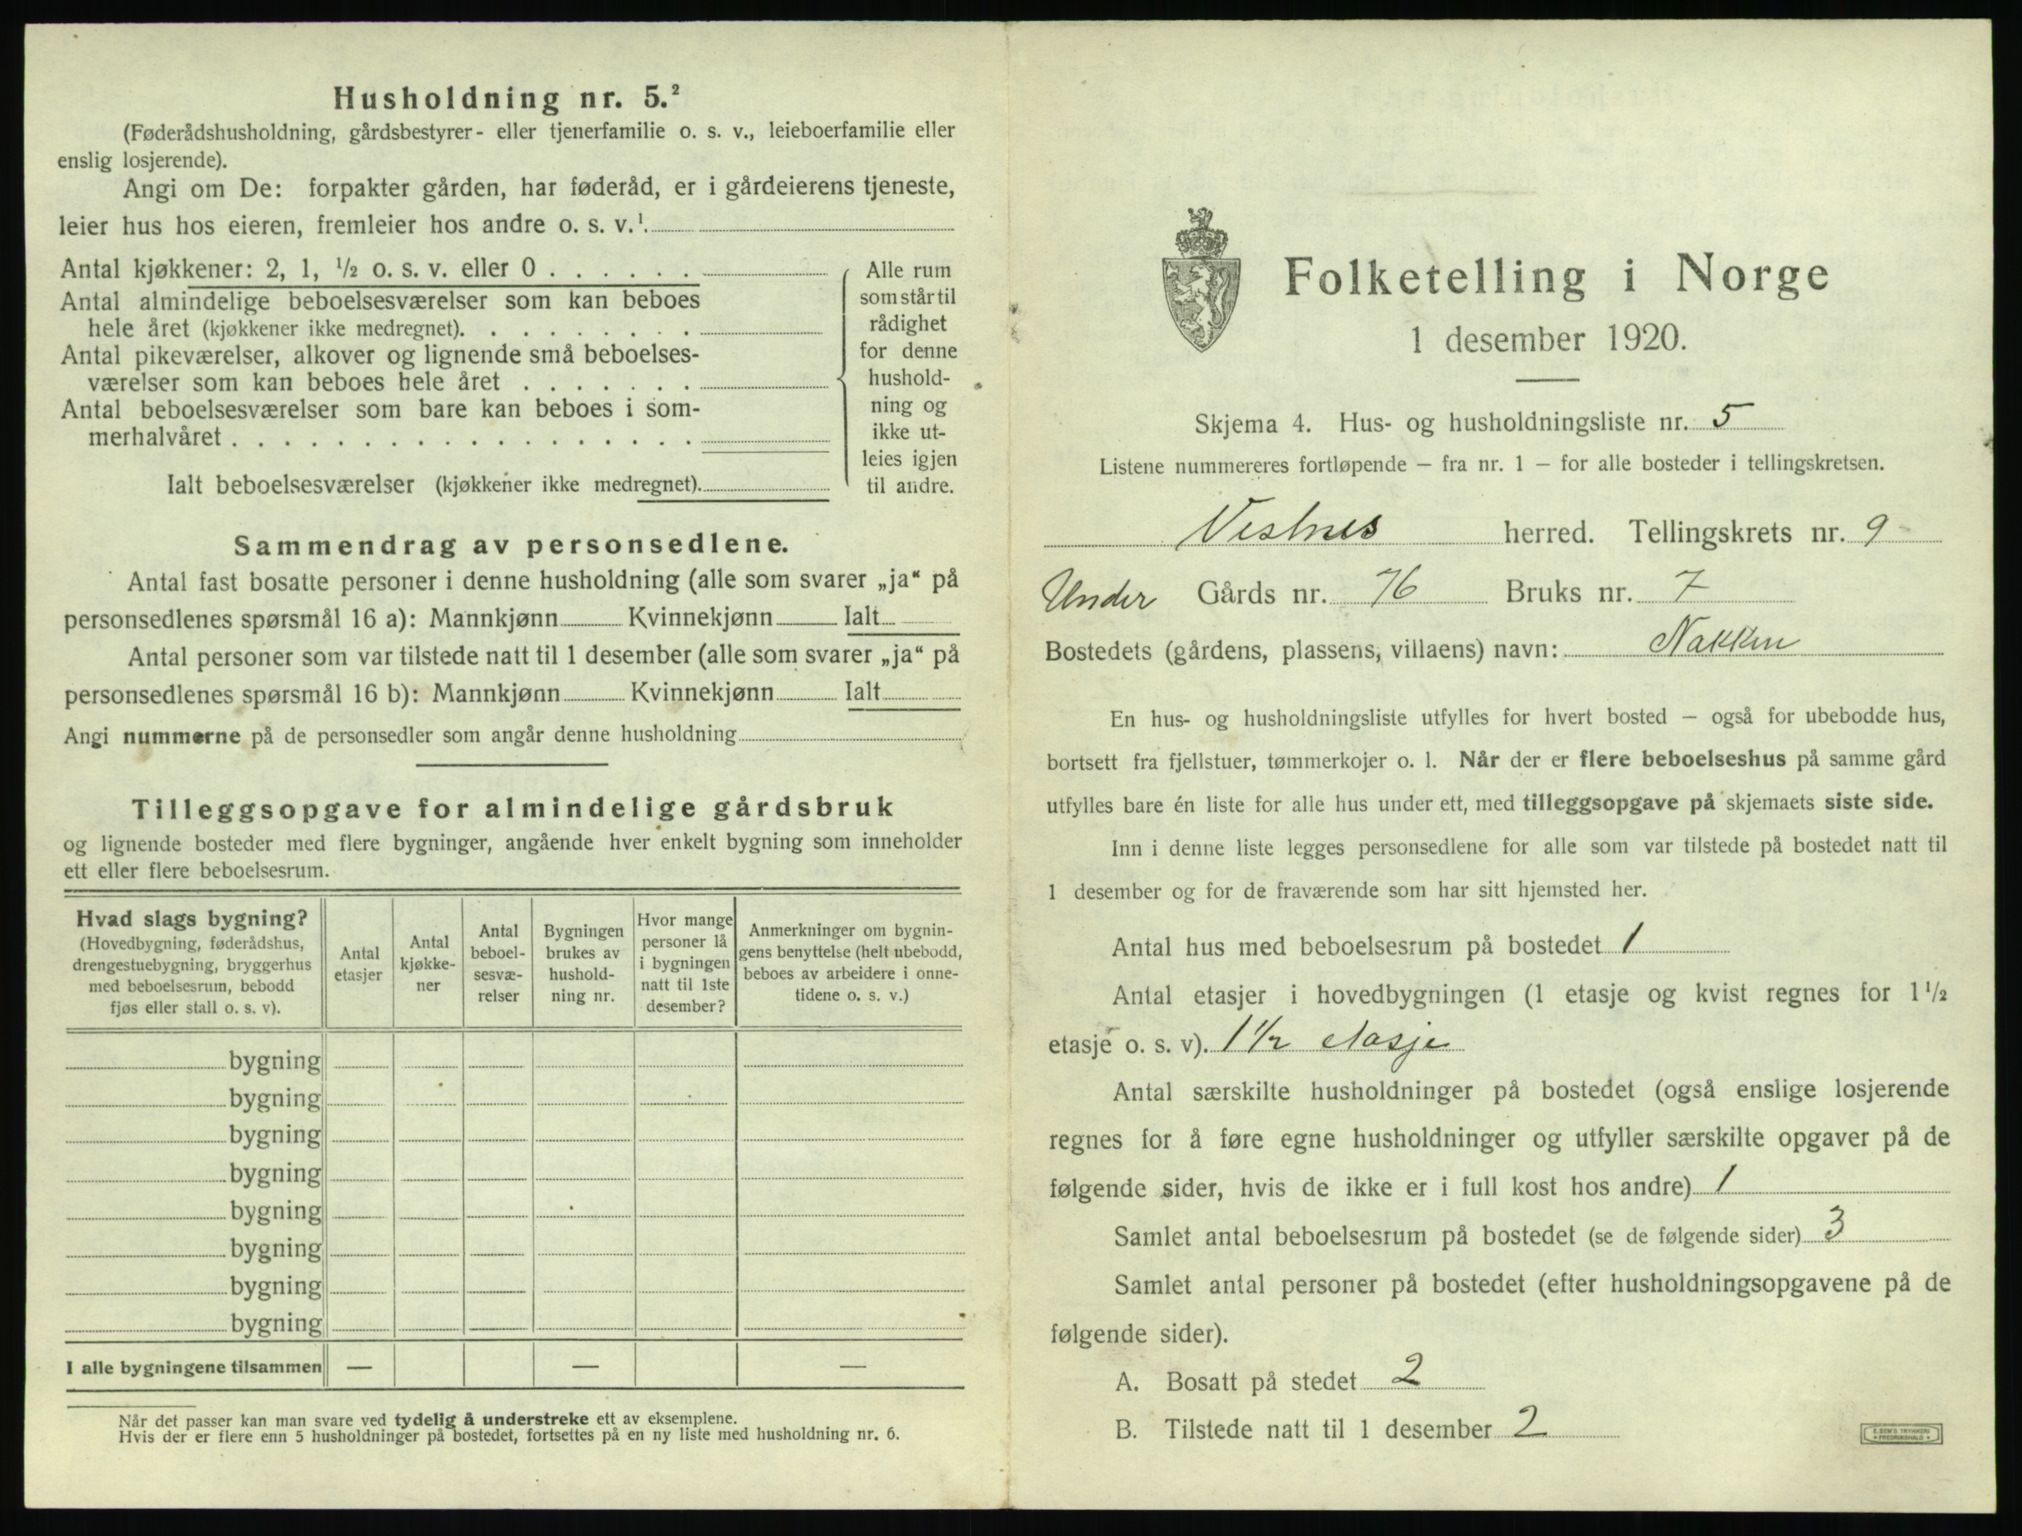 Husholdning nr. 5.²
(Føderådshusholdning, gårdsbestyrer- eller tjenerfamilie o. s. v., leieboerfamilie eller
enslig losjerende).
Angi om De: forpakter gården, har føderåd, er i gårdeierens tjeneste,
leier hus hos eieren, fremleier hos andre o. s. v.¹
Antal kjøkkener: 2, 1, ½ o. s. v. eller 0 . . . . . .
Antal almindelige beboelsesværelser som kan beboes
hele året (kjøkkener ikke medregnet). . . . . . . . .
Antal pikeværelser, alkover og lignende små beboelses-
værelser som kan beboes hele året . . . . . . .
Antal beboelsesværelser som bare kan beboes i som-
merhalvåret . . . . . . . . . . . . . . . . . .
Ialt beboelsesværelser (kjøkkener ikke medregnet).
Alle rum
som står til
rådighet
for denne
hushold-
ning og
ikke ut-
leies igjen
til andre.
Sammendrag av personsedlene.
Antal fast bosatte personer i denne husholdning (alle som svarer „ja“ på
personsedlenes spørsmål 16 a): Mannkjønn Kvinnekjønn Ialt
Antal personer som var tilstede natt til 1 desember (alle som svarer „ja“ på
personsedlenes spørsmål 16 b): Mannkjønn Kvinnekjønn Ialt
Angi nummerne på de personsedler som angår denne husholdning
Tilleggsopgave for almindelige gårdsbruk
og lignende bosteder med flere bygninger, angående hver enkelt bygning som inneholder
ett eller flere beboelsesrum.
Hvad slags bygning?
(Hovedbygning, føderådshus,
drengestuebygning, bryggerhus
med beboelsesrum, bebodd
fjøs eller stall o. s. v).
Antal
etasjer
Antal
kjøkke-
ner
Antal
beboel-
sesvæ-
relser
Bygningen
brukes av
hushold-
ning nr.
Hvor mange
personer lå
i bygningen
natt til 1ste
desember?
Anmerkninger om bygnin-
gens benyttelse (helt ubebodd,
beboes av arbeidere i onne-
tidene o. s. v.)
bygning
bygning
bygning
bygning
bygning
bygning
bygning
bygning
I alle bygningene tilsammen — — —
Når det passer kan man svare ved tydelig å understreke ett av eksemplene.
Hvis der er flere enn 5 husholdninger på bostedet, fortsettes på en ny liste med husholdning nr. 6.
Folketelling i Norge
1 desember 1920.
Skjema 4. Hus- og husholdningsliste nr. 5
Listene nummereres fortløpende – fra nr. 1 – for alle bosteder i tellingskretsen.
Vestnes herred. Tellingskrets nr. 9
Under Gårds nr. 76 Bruks nr. 7
Bostedets (gårdens, plassens, villaens) navn: Nakken
En hus- og husholdningsliste utfylles for hvert bosted – også for ubebodde hus,
bortsett fra fjellstuer, tømmerkojer o. l. Når der er flere beboelseshus på samme gård
utfylles bare én liste for alle hus under ett, med tilleggsopgave på skjemaets siste side.
Inn i denne liste legges personsedlene for alle som var tilstede på bostedet natt til
1 desember og for de fraværende som har sitt hjemsted her.
Antal hus med beboelsesrum på bostedet 1
Antal etasjer i hovedbygningen (1 etasje og kvist regnes for 1½
etasje o. s. v). 1½ etasje
Antal særskilte husholdninger på bostedet (også enslige losjerende
regnes for å føre egne husholdninger og utfyller særskilte opgaver på de
følgende sider, hvis de ikke er i full kost hos andre) 1
Samlet antal beboelsesrum på bostedet (se de følgende sider) 3
Samlet antal personer på bostedet (efter husholdningsopgavene på de
følgende sider).
A. Bosatt på stedet 2
B. Tilstede natt til 1 desember 2
E. SEM'S TRYKKERI
• FREDRIKSHALD •